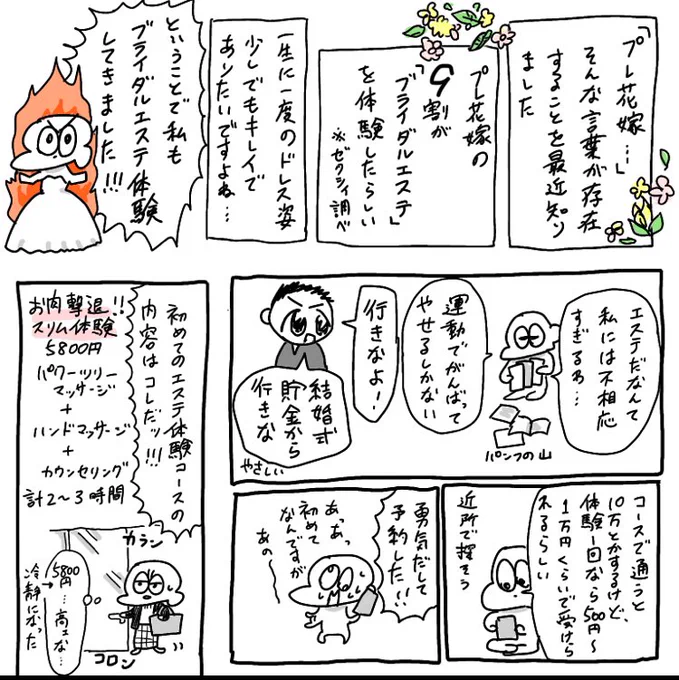 「プレ花嫁…」
そんな言葉が存在
することを最近知り
ました
プレ花嫁の
9割が
「ブライダルエステ」
を体験したらしい
※ゼクシィ調べ
一生に一度のドレス姿
少しでもキレイで
ありたいですよね…
ということで私も
ブライダルエステ体験
してきました!!!
エステだなんて
私には不相応
すぎるわ…
パンフの山
運動でがんばって
やせるしかない
行きなよ!
結婚式
貯金から
行きな
やさしい
コースで通うと
10万とかするけど、
体験1回なら500円〜
1万円くらいで受けら
れるらしい
近所で探そう
勇気だして
予約した!!
あっあっ
初めて
なんですが
あの〜
初めてのエステ体験コースの
内容はコレだッ!!!
お肉撃退!!
スリム体験
5800円
パワーツリー
マッサージ
+
ハンドマッサージ
+
カウンセリング
計2〜3時間
カラン
コロン
5800
円…高ェな…
冷静になった